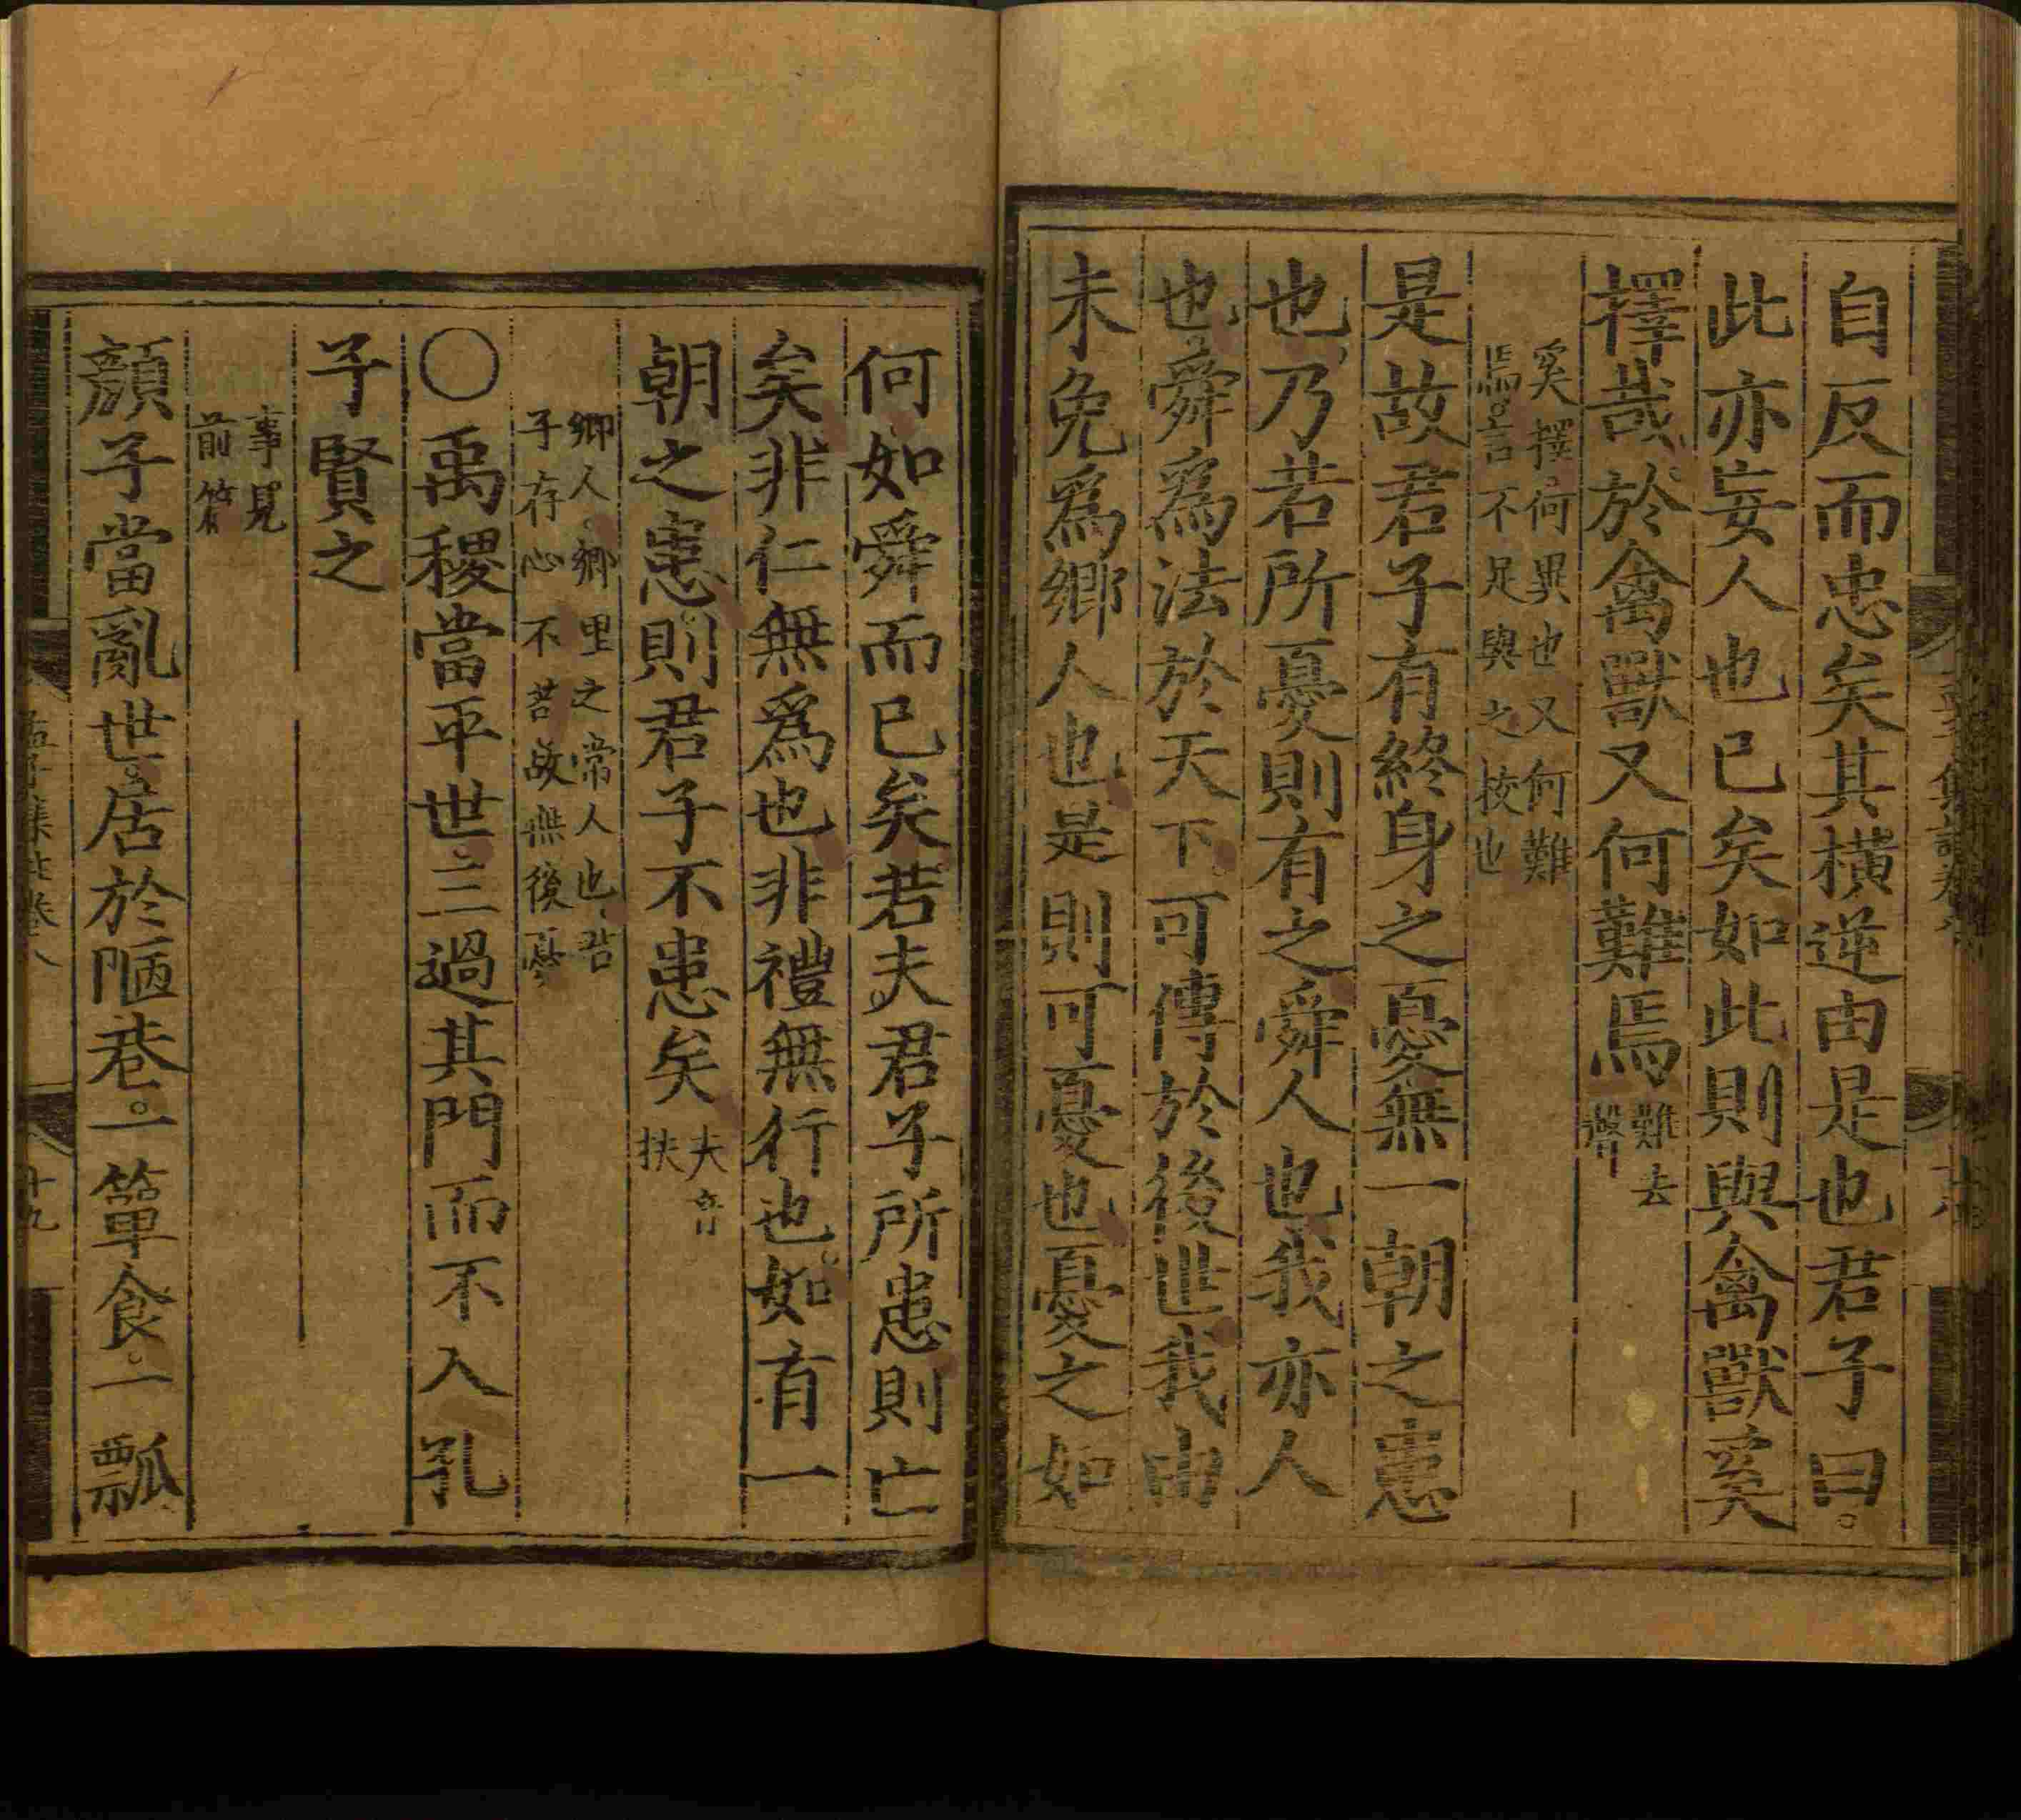 自反而忠矣其橫逆由是也君子曰。
此亦妄人也已矣如此則與禽獸奚
擇哉於禽獸又何難焉難去
聲
奚擇何異也又何難
焉言不足與之校也
是故君子有終身之憂無一朝之患
也乃若所憂則有之舜人也我亦人
也舜爲法於天下可傳於後世我由
未免爲鄉人也是則可憂也憂之如
何如舜而已矣若夫君子所患則亡
矣非仁無爲也非禮無行也如有一
朝之患則君子不患矣夫音
扶
鄉人鄉里之常人也君
子存心不苟故無後憂
〇禹稷當平世三過其門而不入孔
子賢之
事見
前篇
顏子當亂世居於陋巷。一簞食。一瓢
孟子集註卷八
十九